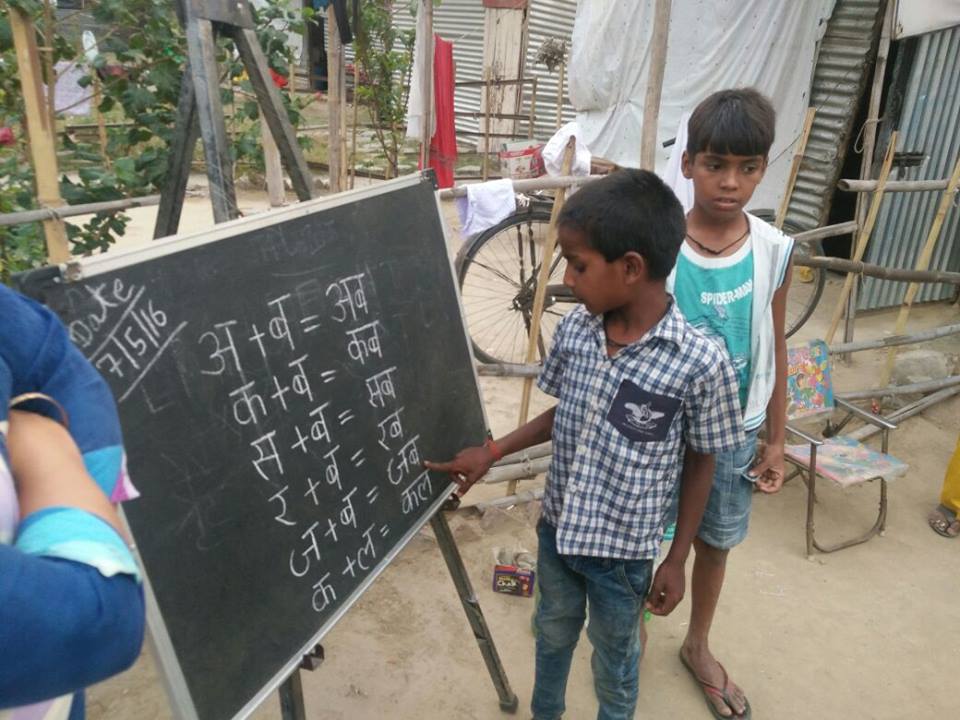 Date
7/5/16
अ + ब = अब
क + ब = कब
स + ब = सब
र + ब = रब
ज + ब = जब
क + ल = कल
SPIDER-MAN